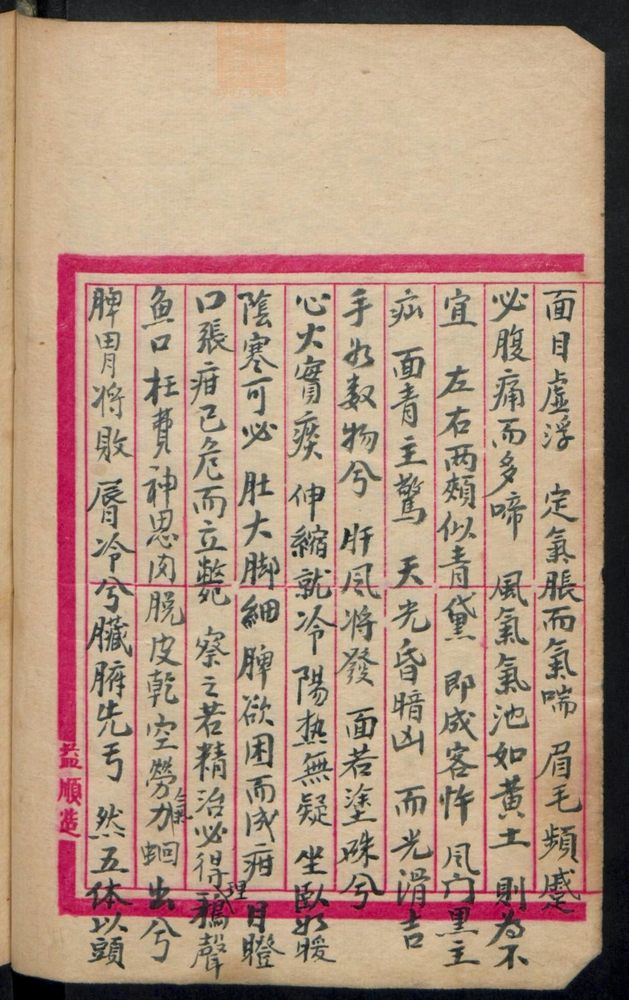 面目虛浮 定氣脹而氣喘 眉毛頻蹙
必腹痛而多啼 風氣氣池如黃土 則為不
宜 左右两頰似青黛 即成客忤 風门黑主
疝 面青主驚 天光昏暗凶 而光滑吉
手如数物兮 肝風将發 面若塗硃兮
心火實㷸 伸縮就冷 陽热無疑 坐臥如暖
陰寒可必 肚大脚細 脾欲困而成疳 目瞪
口張 疳已危而立斃 察之若精 治必得理 鴉聲
魚口 枉費神思 肉脱皮乾 空勞氣力 蛔出兮
脾胃将敗 唇冷兮 臟腑先亏 然五体以頭
益順造